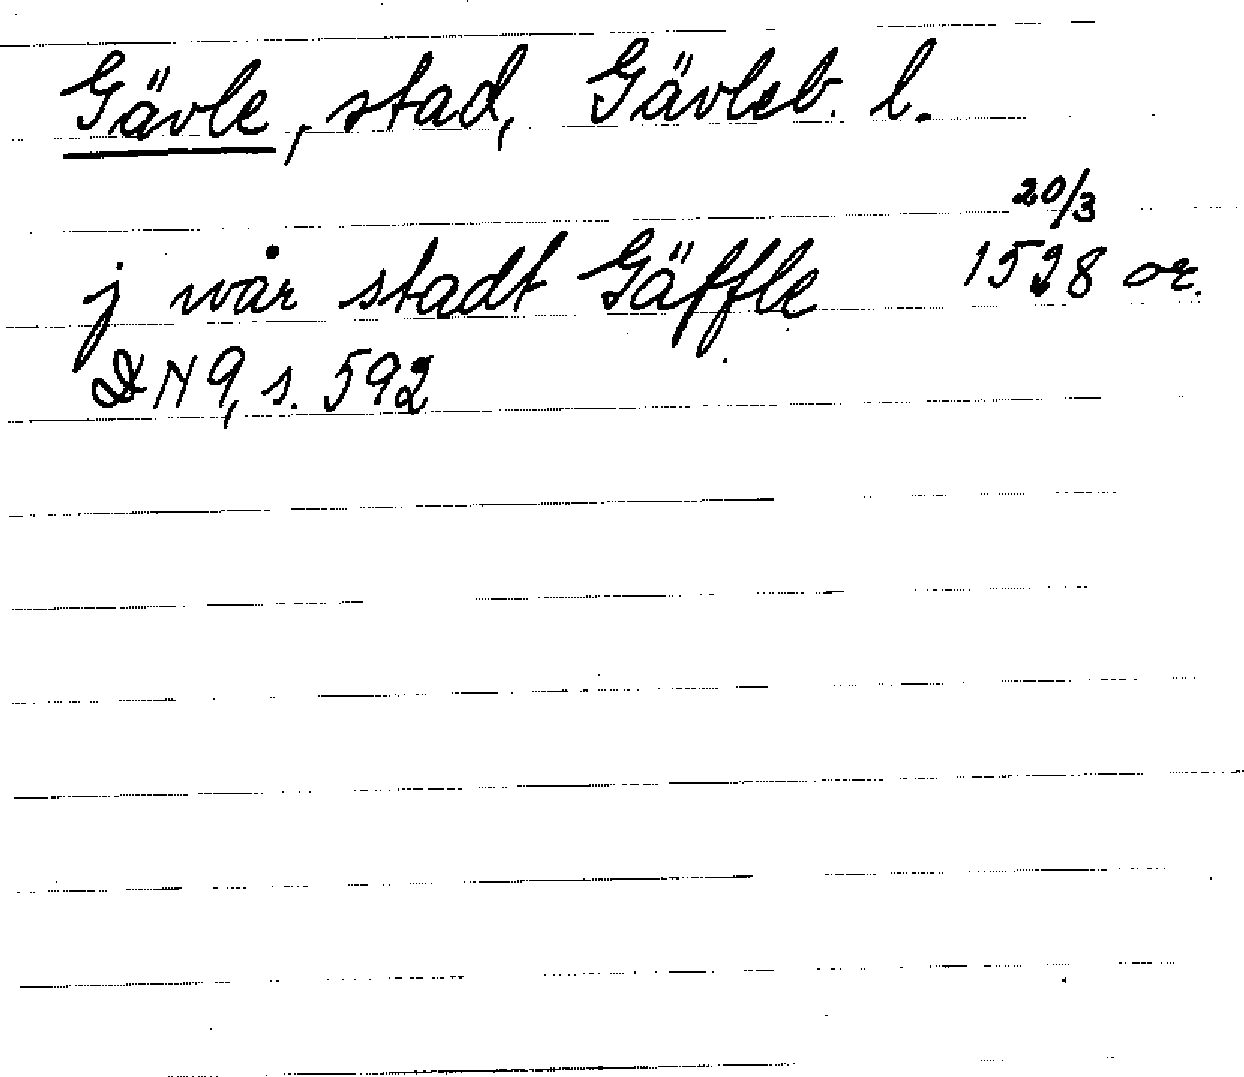 Gävle, stad, Gävleb. l.
j wår stadt Gäffle 20/3 1528 or.
DN 9, s. 592